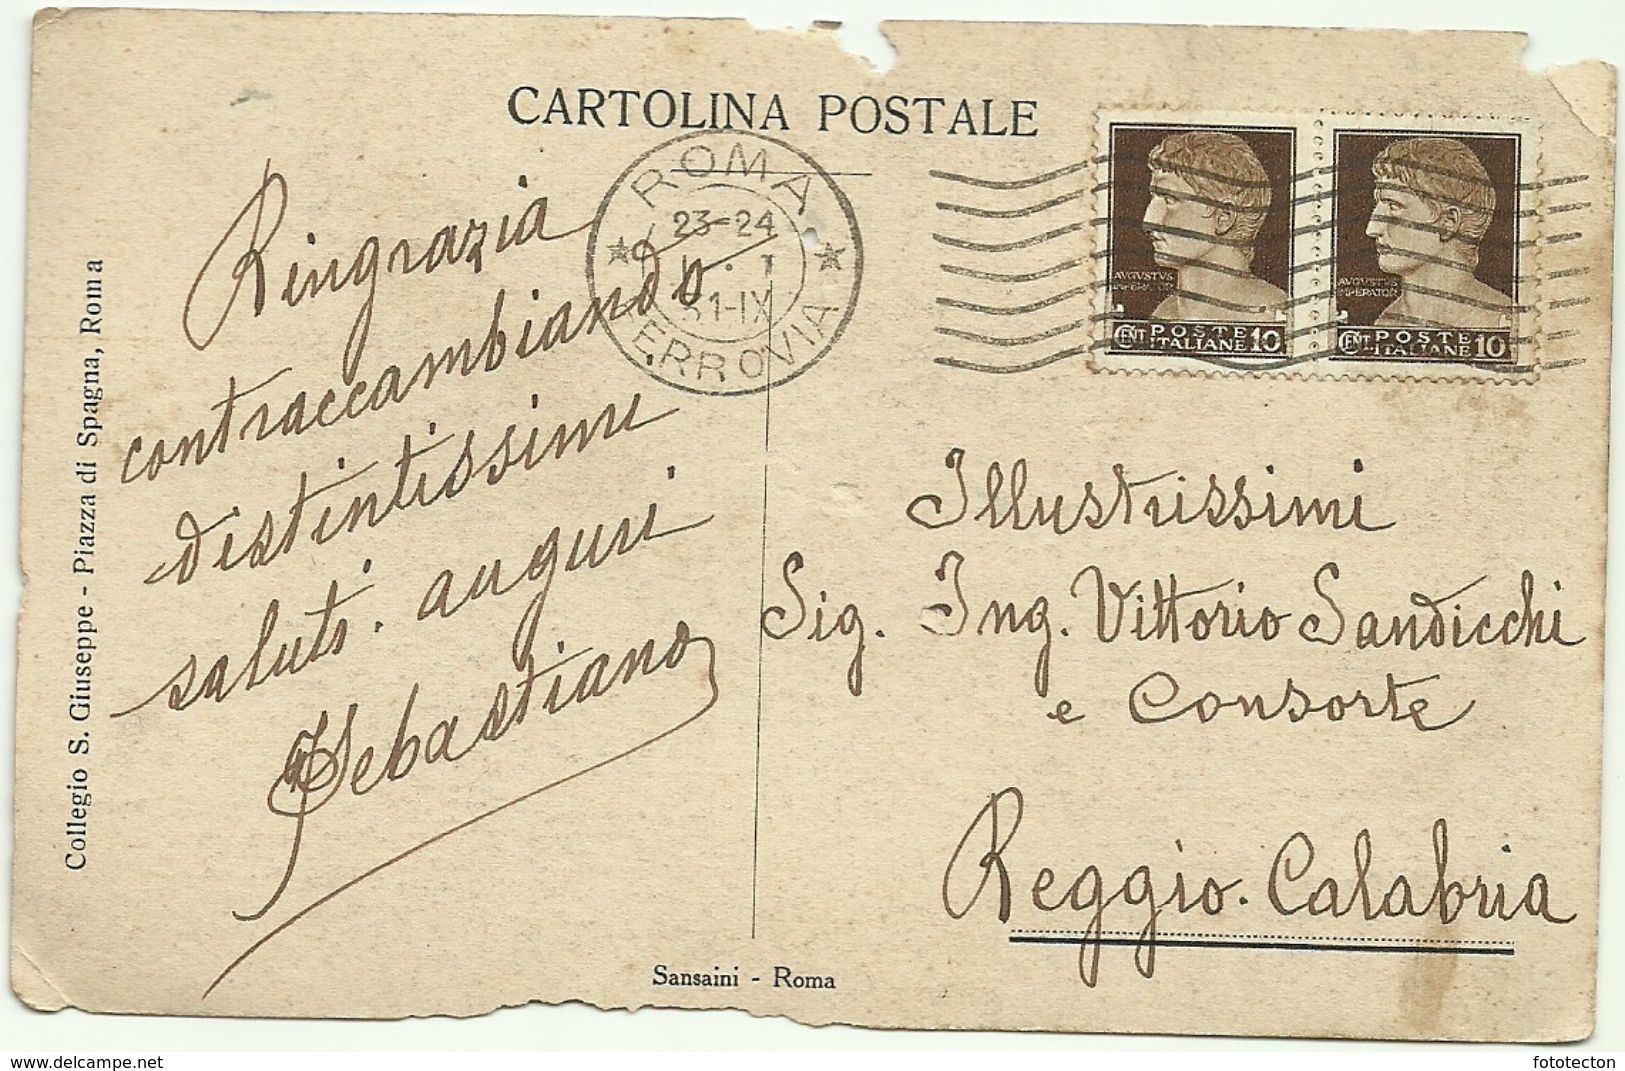 CARTOLINA POSTALE
ROMA
23-24
31-IX
FERROVIA
AVGVSTVS
IMPERATOR
CENT POSTE ITALIANE 10
AVGVSTVS
IMPERATOR
CENT POSTE ITALIANE 10
Ringrazia
contraccambiando
distintissimi
saluti. auguri
Sebastiano
Illustrissimi
Sig. Ing. Vittorio Sandicchi
e Consorte
Reggio. Calabria
Collegio S. Giuseppe - Piazza di Spagna, Roma
Sansaini - Roma
https://www.delcampe.net
fototecton